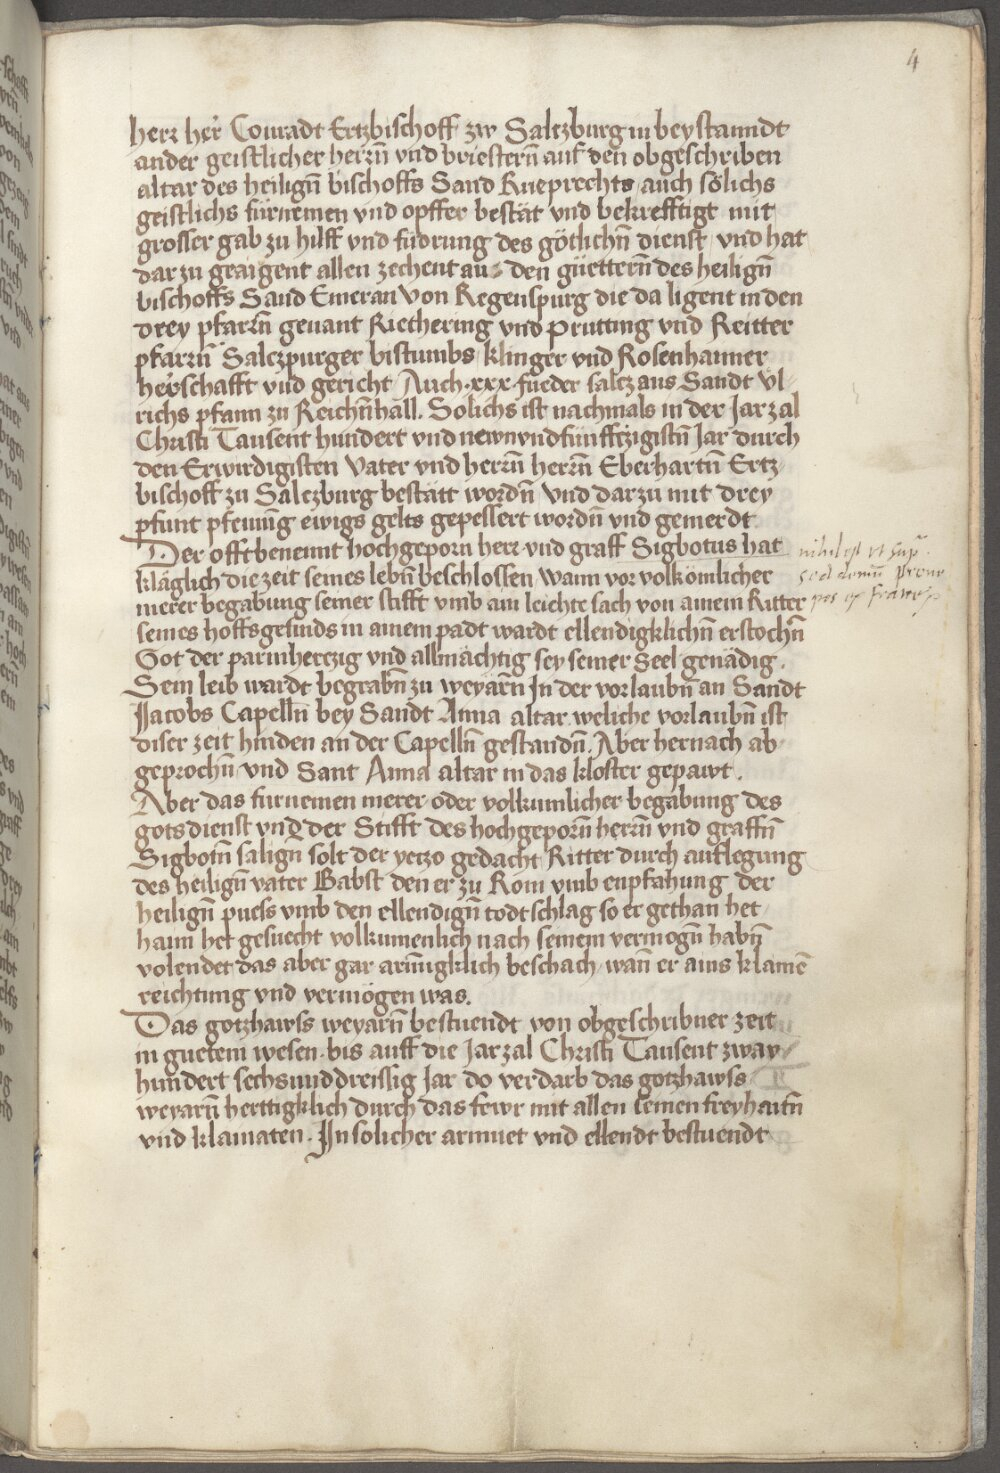 4
herr her Conradt Ertzbischoff zw Saltzburg in beystanndt
ander geistlicher herrn̄ vnd briestern̄ auf den obgeschriben
altar des heilign̄ bischoffs Sand Rueprechts auch sölichs
geistlichs fürnemen vnd opffer bestät vnd bekrefftigt mit
grosser gab zu hilff vnd füdrung des götlichn̄ dienst vnd hat
dar zu geaigent allen zechent aus den güettern̄ des heilign̄
bischoffs Sand Emeran Von Regenspurg die da ligent in den
drey pfarrn̄ genant Riethering vnd Prutting vnd Reitter
pfarrn̄ Salczpurger bistumbs klinger vnd Rosenhaimer
herschafft vnd gericht Auch ·xxx· fueder saltz aus Sandt Vl-
richs pfann zu Reichn̄hall. Solichs ist nachmals in der Jarzal
Christi Tausent hundert vnd newnvndfunfftzigistn̄ Jar durch
den Erwirdigisten Vater vnd herrn̄ herrn̄ Eberhartn̄ Ertz
bischoff zu Salczburg bestätt wordn̄ vnd darzu mit drey
pfunt pfennīg ewigs gelts gepessert wordn̄ vnd gemerdt
Der offtbenennt hochgeporn herr vnd graff Sigbotus hat
kläglich die zeit seines lebn̄ beschlossen wann vor volkömlicher
merer begabung seiner stifft vmb ain leichte sach von ainem Ritter
seines hoffsgesinds in ainem padt wardt ellendigklichn̄ erstochn̄
Got der parmhertzig vnd allmächtig sey seiner Seel genädig.
Sein leib wardt begrabn̄ zu weyarn̄ Jn der vorlaubn̄ an Sandt
Jacobs Capelln̄ bey Sandt Anna altar weliche vorlaubn̄ ist
diser zeit hinden an der Capelln̄ gestandn̄. Aber hernach ab
geprochn̄ vnd Sant Anna altar in das kloster gepawt.
Aber das furnemen merer oder volkumlicher begabung des
gotsdienst vnd der Stifft des hochgeporn̄ herrn̄ vnd graffn̄
Sigbotn̄ salign̄ solt der yetzo gedacht Ritter durch auflegung
des heilign̄ vater Babst den er zu Rom vmb enpfahung der
heilign̄ puess vmb den ellendign̄ todtschlag so er gethan het
haim het gesuecht volkumenlich nach seinem vermogn̄ habn̄
volendet das aber gar armīgklich beschach wan̄ er ains klainē
reichtung vnd vermögen was.
Das gotzhawss weyarn̄ bestuendt von obgeschribner zeit
in guetem wesen bis auff die Jarzal Christi Tausent zway
hundert sechsunddreissig Jar do verdarb das gotzhawss
weyarn̄ herttigklich durch das fewr mit allen seinen freyhaitn̄
vnd klainaten. Jn solicher armuet vnd ellendt bestuendt